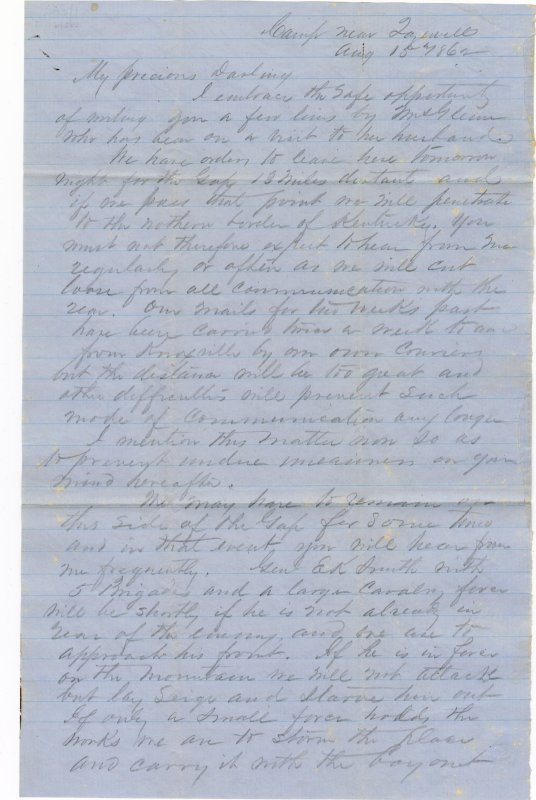 Camp near Tazewell
Aug 15th 1862
My precious Darling
I embrace the safe opportunity
of writing you a few lines by Mrs Glenn
who has been on a visit to her husband.
We have orders to leave here tomorrow
night for the Gap 13 miles distant and
if we pass that point we will penetrate
to the nothern border of Kentucky. You
must not therefore expect to hear from me
regularly or often as we will cut
loose from all communication with the
rear. Our mails for two weeks past
have been carried twice a week to and
from Knoxville by our own Couriers
but the distance will be too great and
other difficulties will prevent such
mode of communication any longer
I mention this matter now so as
to prevent undue uneasiness on your
mind hereafter.
We may have to remain on
this side of the Gap for some time
and in that event, you will hear from
me frequently. Gen E K Smith with
5 Brigades and a large Cavalry force
will be shortly if he is not already in
rear of the enemy, and we are to
approach his front. If he is in force
on the Mountain we will not attack
but lay Seige and starve him out
If only a small force holds the
works we are to storm the place
and carry it with the bayonet